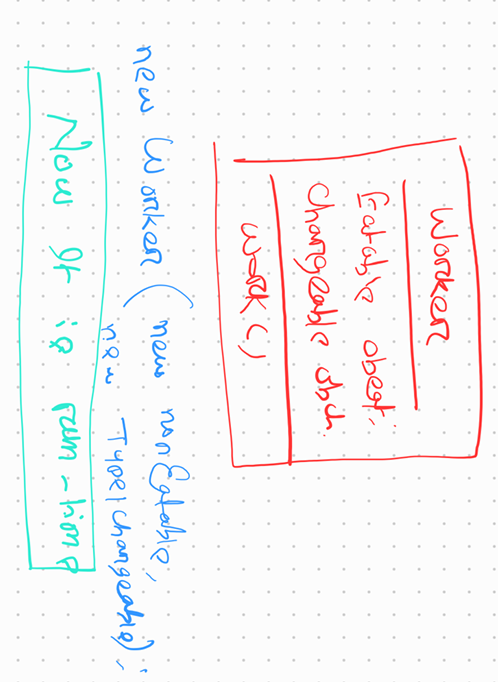 Worker
Eatable obest;
Changeable obch.
work()
new Worker ( new nonEatable,
new Type1changeable);
Now It is run-time